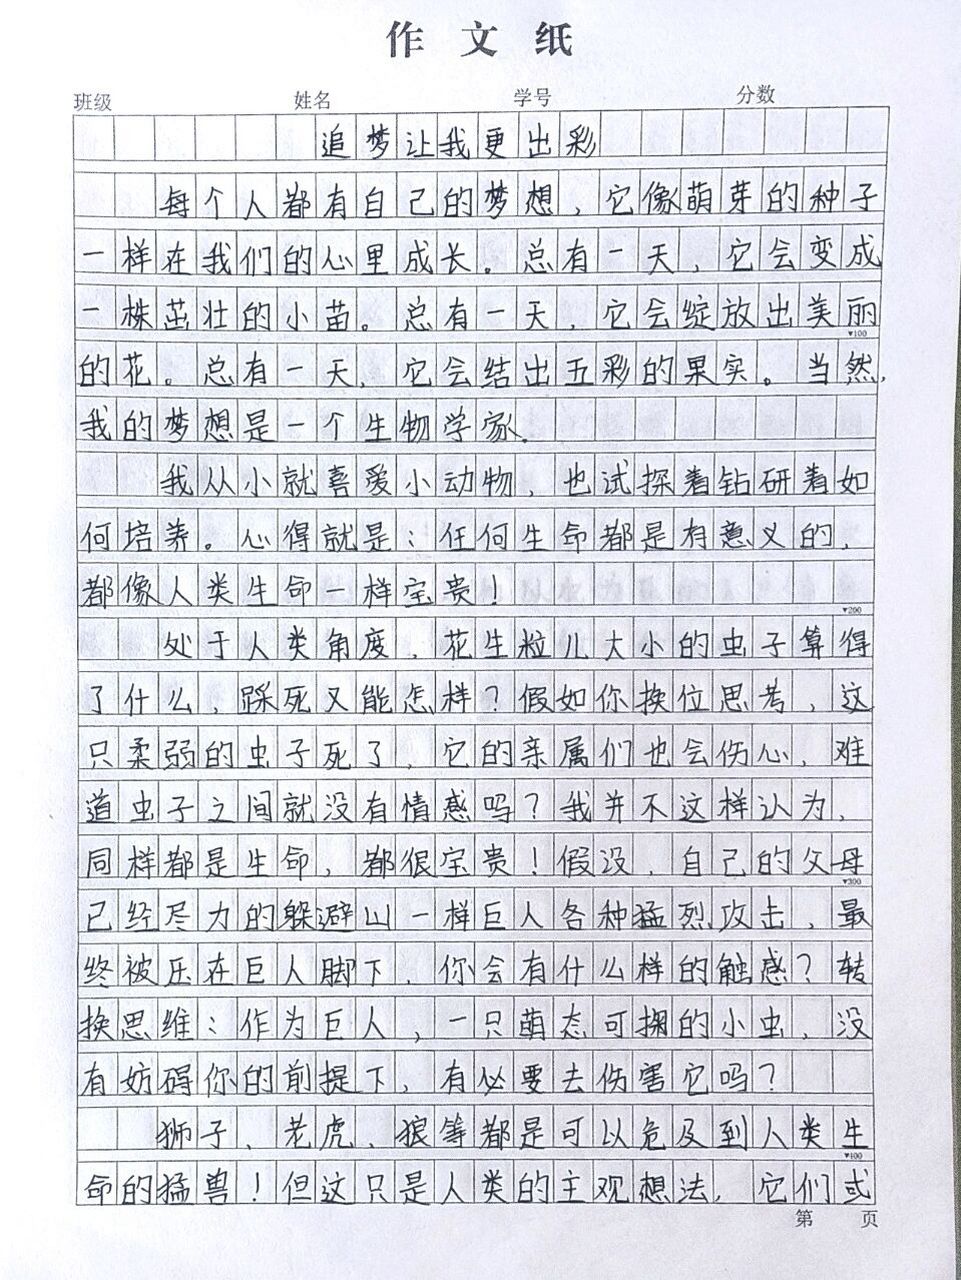 作 文 纸
班级 姓名 学号 分数
追梦让我更出彩
每个人都有自己的梦想，它像萌芽的种子
一样在我们的心里成长。总有一天，它会变成
一株茁壮的小苗。总有一天，它会绽放出美丽
▼100
的花。总有一天，它会结出五彩的果实。当然，
我的梦想是一个生物学家。
我从小就喜爱小动物，也试探着钻研着如
何培养。心得就是：任何生命都是有意义的，
都像人类生命一样宝贵！
▼200
处于人类角度，花生粒儿大小的虫子算得
了什么，踩死又能怎样？假如你换位思考，这
只柔弱的虫子死了，它的亲属们也会伤心，难
道虫子之间就没有情感吗？我并不这样认为，
同样都是生命，都很宝贵！假设，自己的父母
▼300
已经尽力的躲避山一样巨人各种猛烈攻击，最
终被压在巨人脚下，你会有什么样的触感？转
换思维：作为巨人，一只萌态可掬的小虫，没
有妨碍你的前提下，有必要去伤害它吗？
狮子、老虎、狼等都是可以危及到人类生
▼400
命的猛兽！但这只是人类的主观想法，它们或
第 页